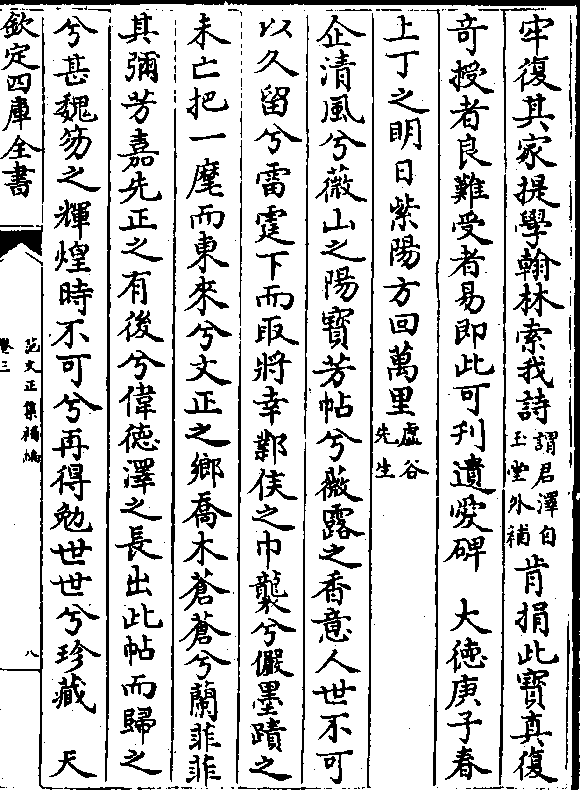 牢復其家提學翰林索我詩謂君澤自玉堂外補肯捐此寶真復
竒授者良難受者易即此可刋遺愛碑　大徳庚子春
上丁之明日紫陽方回萬里虚谷先生
企清風兮薇山之陽寳芳帖兮薇露之香意人世不可
以久留兮雷霆下而取將幸鄴侯之巾襲兮儼墨蹟之
未亡把一麾而東來兮文正之鄉喬木蒼蒼兮蘭菲菲
其彌芳嘉先正之有後兮偉徳澤之長出此帖而歸之
兮甚魏笏之輝煌時不可兮再得勉世世兮珍藏　天
欽定四庫全書
范文正集補編
卷三
八